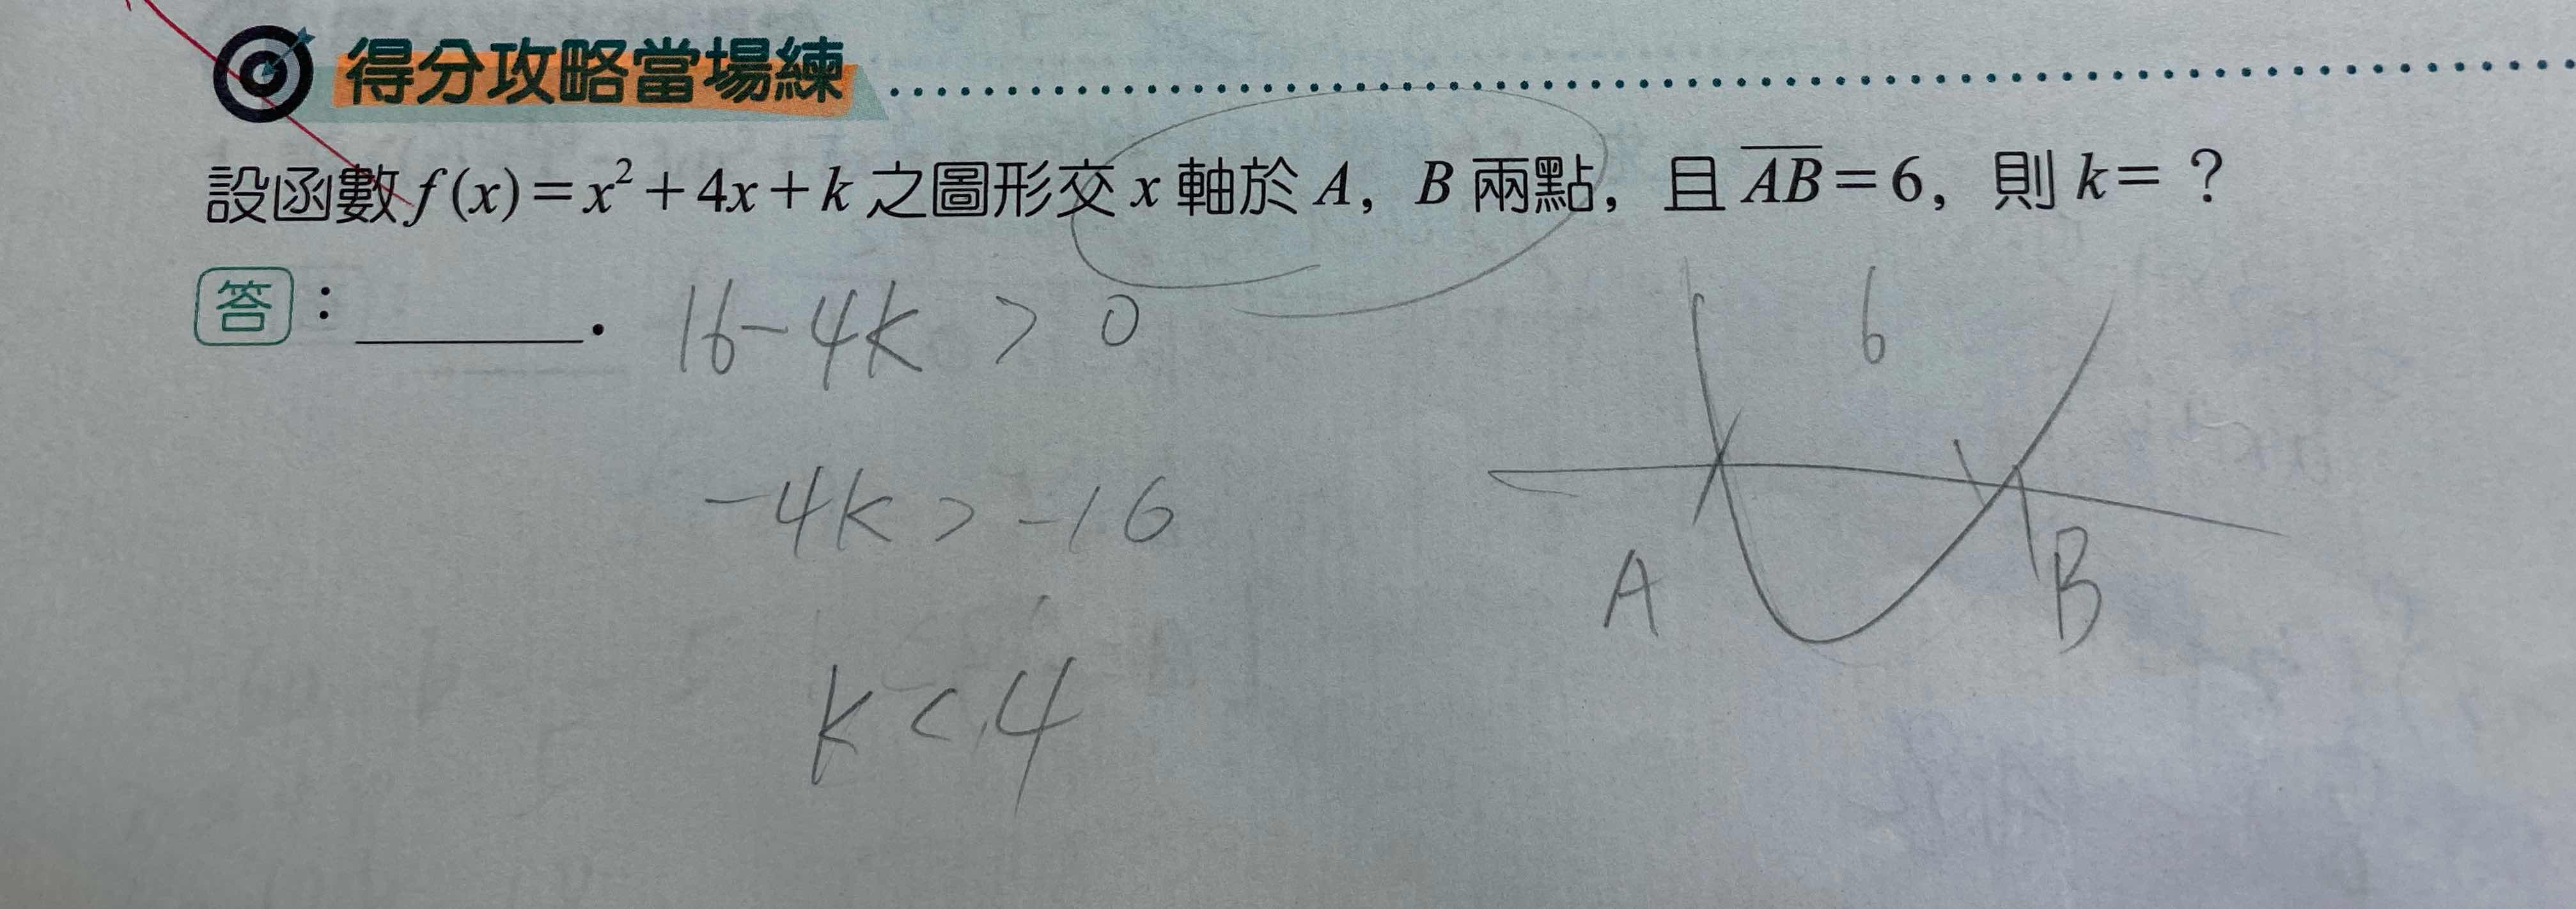 得分攻略當場練
設函數 f(x)=x²+4x+k 之圖形交 x 軸於 A，B 兩點，且 \overline{AB}=6，則 k=？
答：______.
16-4k > 0
-4k > -16
k < 4
6
A
B